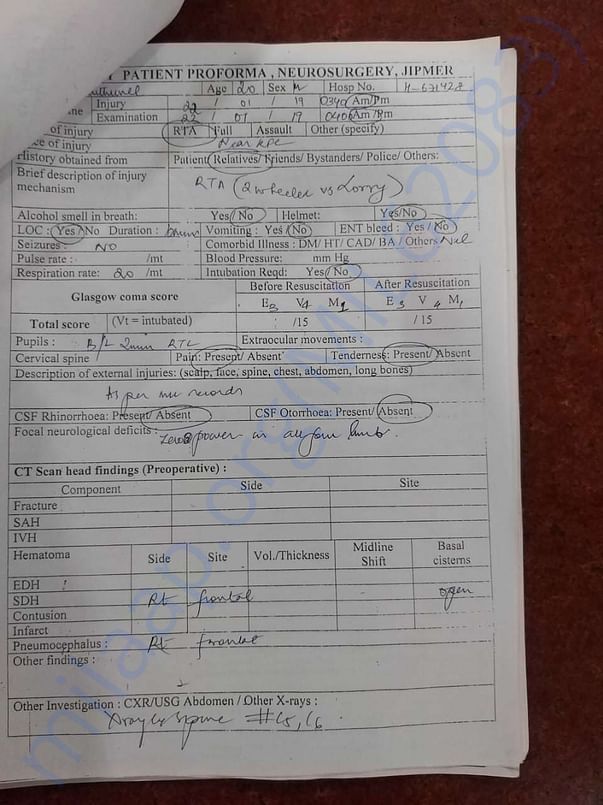 PATIENT PROFORMA , NEUROSURGERY, JIPMER
Age 20 Sex M Hosp No.
Injury 22 / 01 / 19 0340 Am/Pm
Examination 22 / 01 / 19 0400 Am/Pm
of injury RTA Fall Assault Other (specify)
of injury Near KPC
History obtained from Patient/ Relatives/ Friends/ Bystanders/ Police/ Others:
Brief description of injury mechanism RTA (2 wheeler vs Lorry)
Alcohol smell in breath: Yes/ No Helmet: Yes/No
LOC : Yes/ No Duration : Vomiting : Yes/ No ENT bleed : Yes / No
Seizures : NO Comorbid Illness : DM/ HT/ CAD/ BA / Others Nil
Pulse rate : /mt Blood Pressure: mm Hg
Respiration rate: 20 /mt Intubation Reqd: Yes/ No
Glasgow coma score Before Resuscitation After Resuscitation
E3 V4 M1 E3 V4 M1
Total score (Vt = intubated) /15 /15
Pupils : B/L 2mm RTL Extraocular movements :
Cervical spine Pain: Present/ Absent Tenderness: Present/ Absent
Description of external injuries: (scalp, face, spine, chest, abdomen, long bones)
As per records
CSF Rhinorrhoea: Present/ Absent CSF Otorrhoea: Present/ Absent
Focal neurological deficits : Zero power in all four limbs.
CT Scan head findings (Preoperative) :
Component Side Site
Fracture
SAH
IVH
Hematoma Side Site Vol./Thickness Midline Shift Basal cisterns
EDH
SDH Rt frontal open
Contusion
Infarct
Pneumocephalus : Rt frontal
Other findings :
Other Investigation : CXR/USG Abdomen / Other X-rays :
Xray Cx Spine # C5, C6